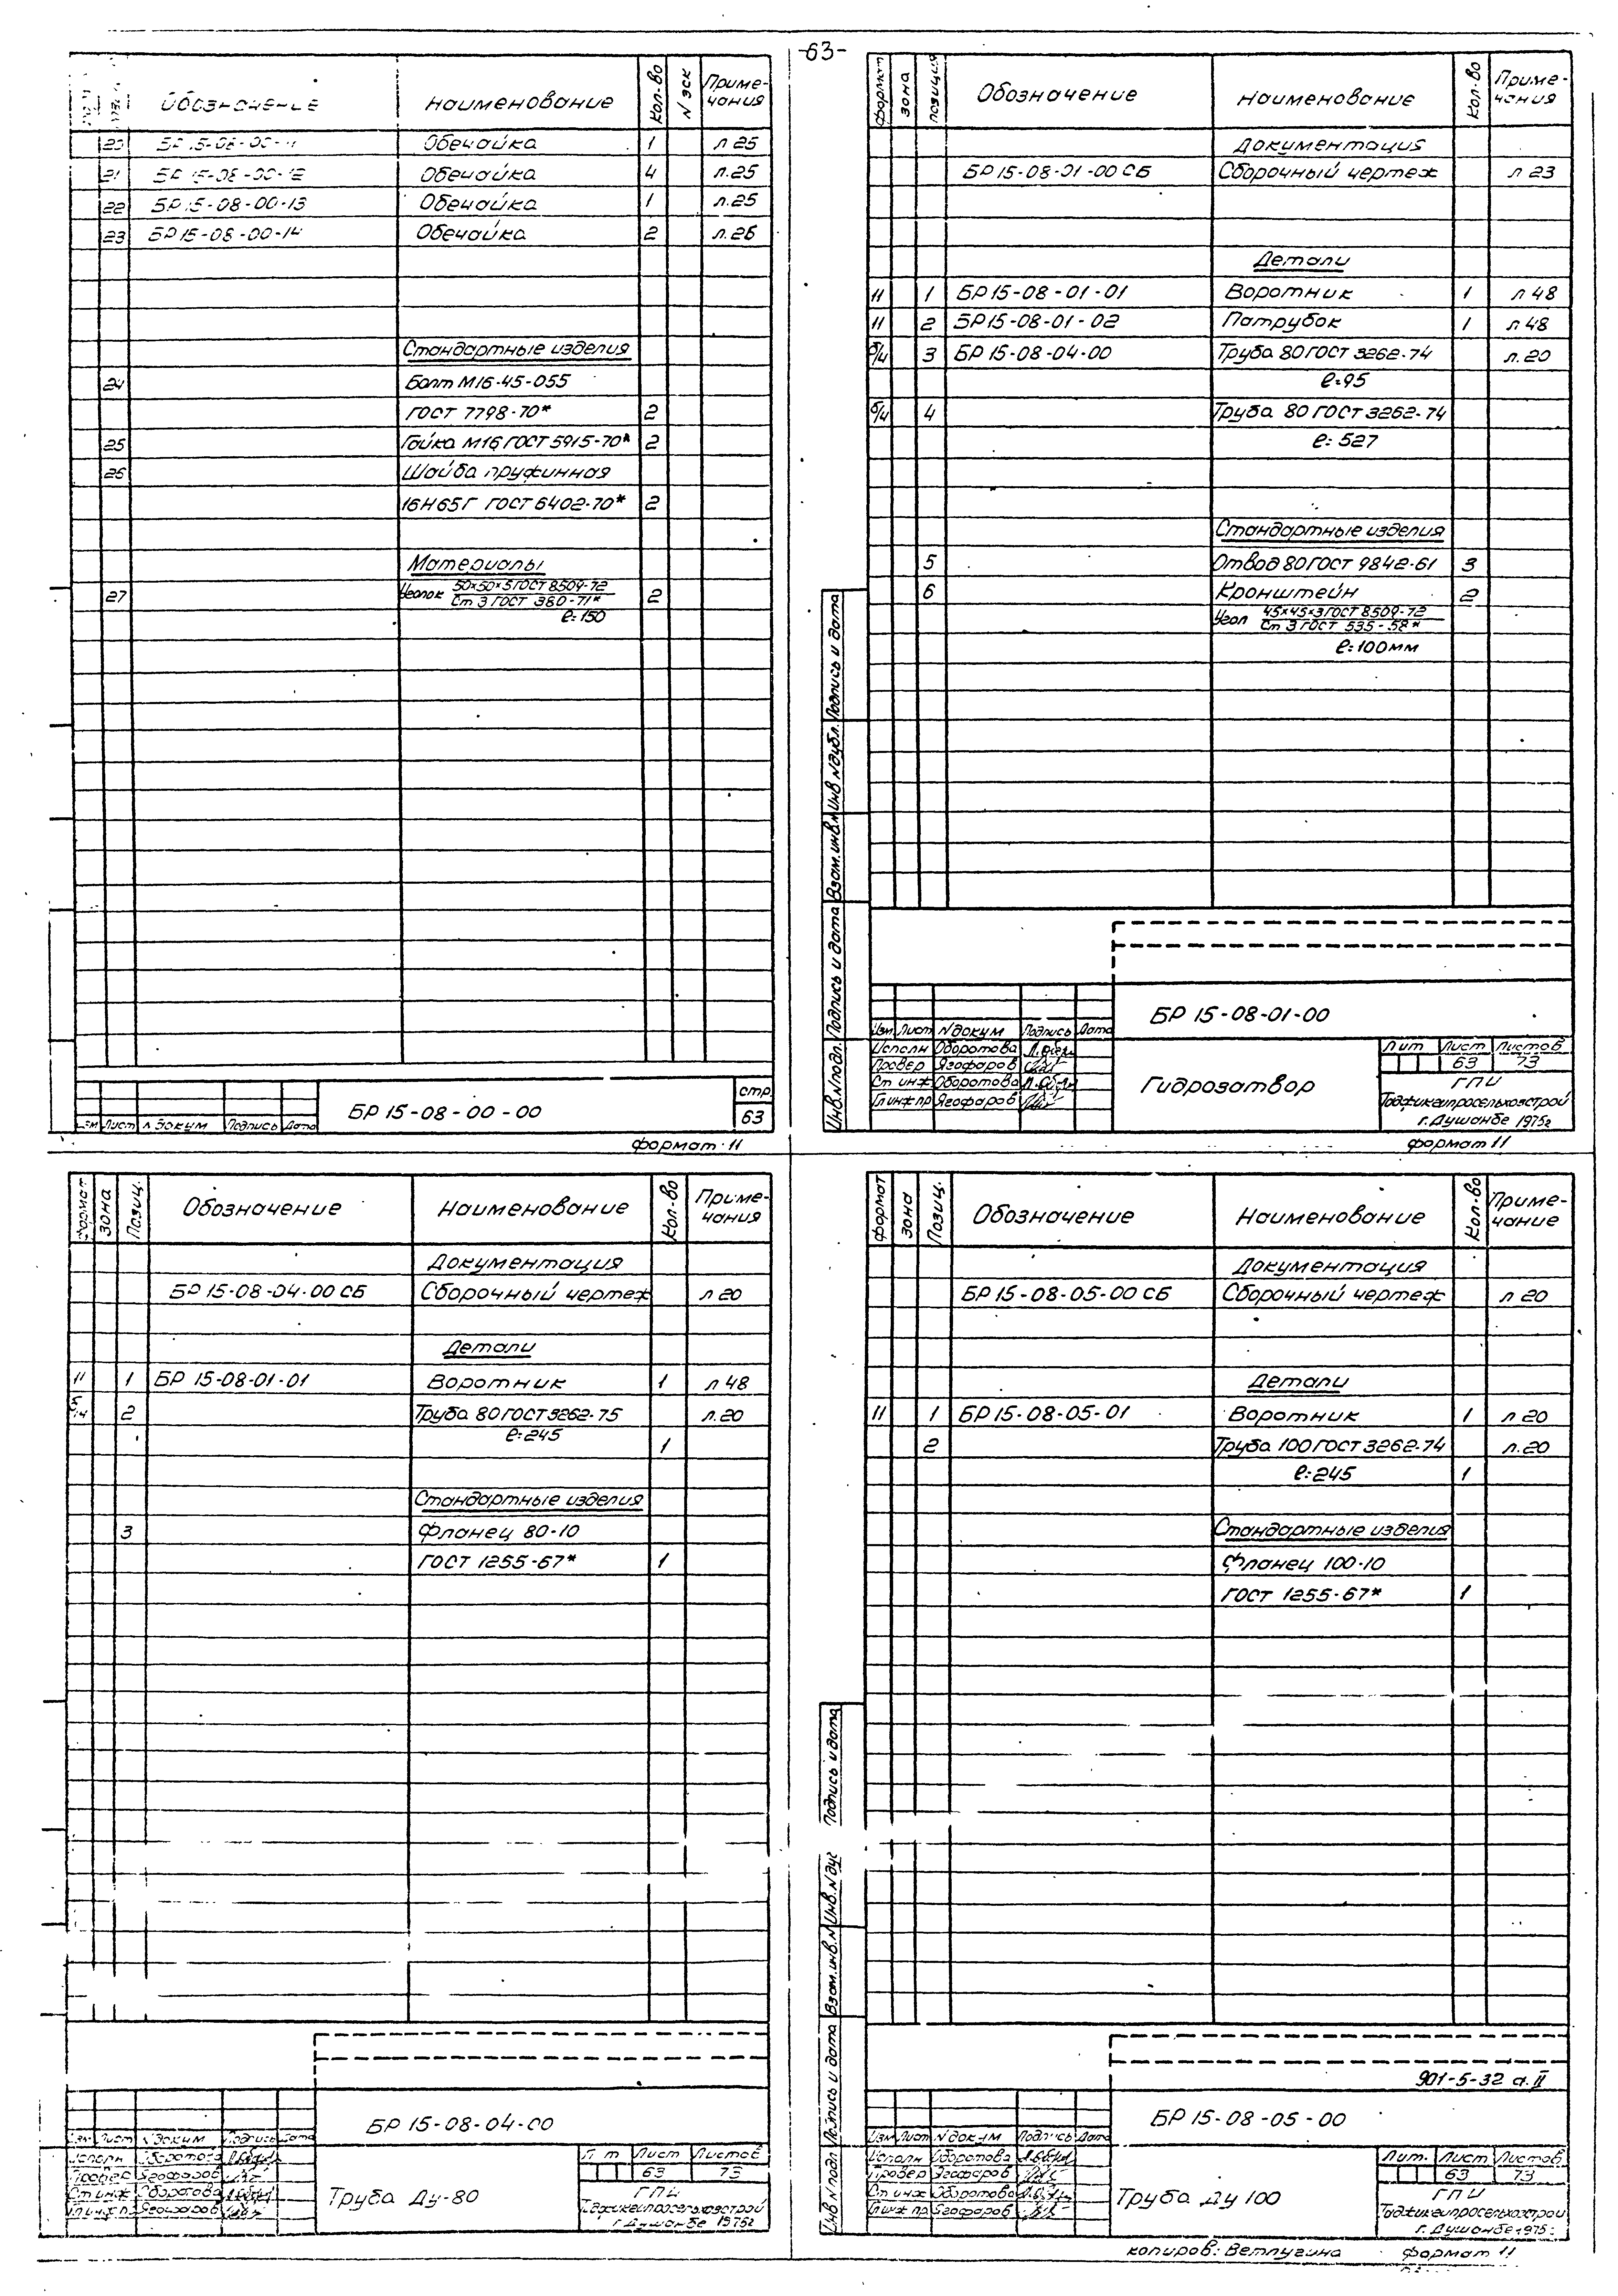 -63-
Обозначение Наименование Кол-во N эск Примечания
20 БР 15-08-00-11 Обечайка 1 л 25
21 БР 15-08-00-12 Обечайка 4 л.25
22 БР 15-08-00-13 Обечайка 1 л.25
23 БР 15-08-00-14 Обечайка 2 л.26
Стандартные изделия
24 Болт М16-45-055
ГОСТ 7798-70* 2
25 Гайка М16 ГОСТ 5915-70* 2
26 Шайба пружинная
16Н65Г ГОСТ 6402-70* 2
Материалы
27 Уголок 50×50×5 ГОСТ 8509-72 2
Ст 3 ГОСТ 380-71*
ℓ=150
БР 15-08-00-00
стр.
63
Изм Лист N докум Подпись Дата
формат 11
формат зона позиция Обозначение Наименование Кол-во Примечания
Документация
БР 15-08-01-00 СБ Сборочный чертеж л 23
Детали
11 1 БР 15-08-01-01 Воротник 1 л 48
11 2 БР 15-08-01-02 Патрубок 1 л 48
б/ч 3 БР 15-08-04-00 Труба 80 ГОСТ 3262-74 л.20
ℓ=95
б/ч 4 Труба 80 ГОСТ 3262-74
ℓ=527
Стандартные изделия
5 Отвод 80 ГОСТ 9842-61 3
6 Кронштейн 2
Угол 45×45×3 ГОСТ 8509-72
Ст 3 ГОСТ 535-58*
ℓ=100мм
Инв.N подл. Подпись и дата Взам.инв.N Инв.N дубл. Подпись и дата
БР 15-08-01-00
Изм Лист N докум Подпись Дата
Исполн Оборотова
Провер Ягофаров
Ст инж Оборотова
Гл инж пр Ягофаров
Гидрозатвор
Лит Лист Листов
63 73
ГПИ
Таджикгипросельхозстрой
г. Душанбе 1975г
формат 11
формат зона Позиц. Обозначение Наименование Кол-во Примечания
Документация
БР 15-08-04-00 СБ Сборочный чертеж л 20
Детали
11 1 БР 15-08-01-01 Воротник 1 л 48
б/ч 2 Труба 80 ГОСТ 3262-75 л.20
ℓ=245 1
Стандартные изделия
3 Фланец 80-10
ГОСТ 1255-67* 1
БР 15-08-04-00
Изм Лист N докум Подпись Дата
Исполн Оборотова
Провер Ягофаров
Ст инж Оборотова
Гл инж пр Ягофаров
Труба Ду-80
Лист Листов
63 73
ГПИ
Таджикгипросельхозстрой
г. Душанбе 1975г
формат зона Позиц. Обозначение Наименование Кол-во Примечание
Документация
БР 15-08-05-00 СБ Сборочный чертеж л 20
Детали
11 1 БР 15-08-05-01 Воротник 1 л 20
2 Труба 100 ГОСТ 3262-74 л.20
ℓ=245 1
Стандартные изделия
Фланец 100-10
ГОСТ 1255-67* 1
Инв.N подл Подпись и дата Взам.инв.N Инв.N дуб Подпись и дата
901-5-32 а.II
БР 15-08-05-00
Изм Лист N докум Подпись Дата
Исполн Оборотова
Провер Ягофаров
Ст инж Оборотова
Гл инж пр Ягофаров
Труба Ду 100
Лит. Лист Листов
63 73
ГПИ
Таджикгипросельхозстрой
г. Душанбе 1975г
копиров: Ветлугина формат 11